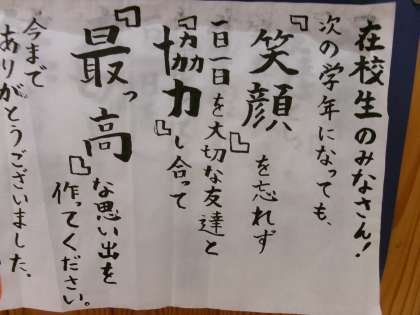 在校生のみなさん!
次の学年になっても、
『笑顔』を忘れず
一日一日を大切な友達と
『協力』し合って
『最っ高』な思い出を
作ってください。
今まで
ありがとうございました。